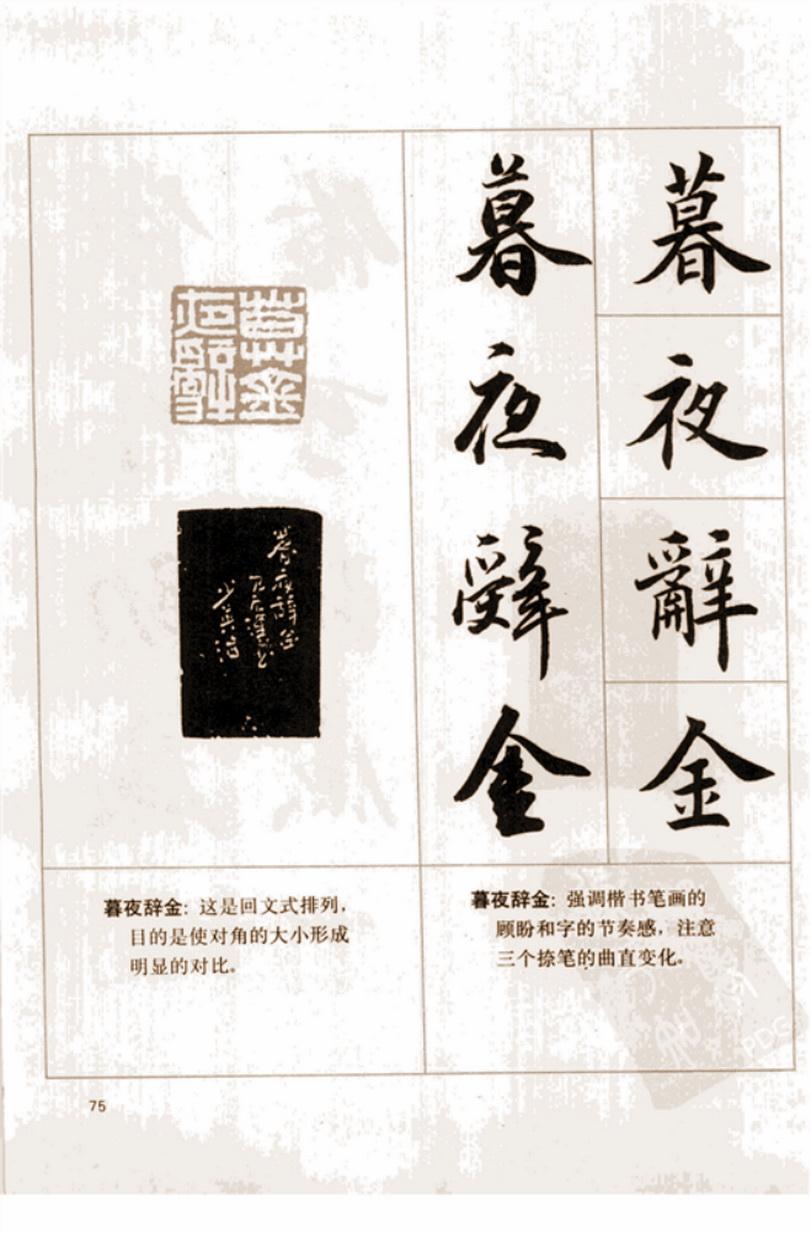 暮夜辭金
暮夜辭金
暮金夜辭
暮夜辭金
暮夜辞金：强调楷书笔画的
顾盼和字的节奏感，注意
三个捺笔的曲直变化。
暮夜辞金：这是回文式排列，
目的是使对角的大小形成
明显的对比。
75